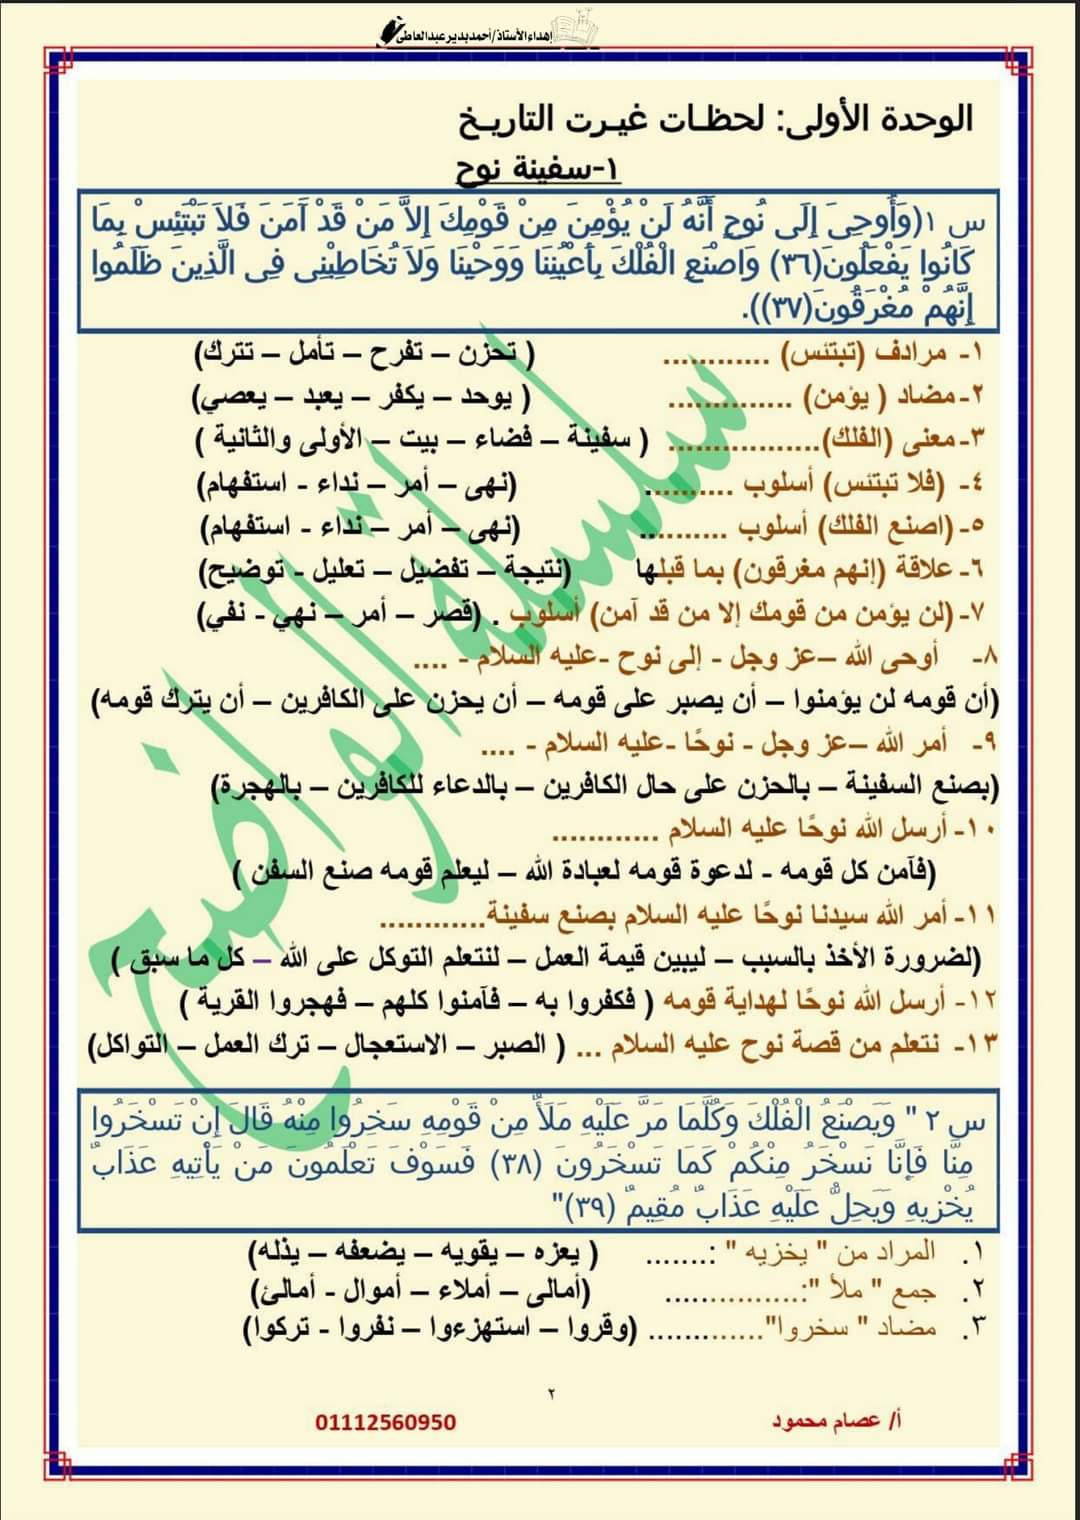 إهداء الأستاذ/أحمد بدير عبدالعاطى
الوحدة الأولى: لحظات غيرت التاريخ
١-سفينة نوح
س ١(وَأُوحِىَ إِلَى نُوحٍ أَنَّهُ لَنْ يُؤْمِنَ مِنْ قَوْمِكَ إِلاَّ مَنْ قَدْ آمَنَ فَلاَ تَبْتَئِسْ بِمَا
كَانُوا يَفْعَلُونَ(٣٦) وَاصْنَعِ الْفُلْكَ بِأَعْيُنِنَا وَوَحْيِنَا وَلاَ تُخَاطِبْنِى فِى الَّذِينَ ظَلَمُوا
إِنَّهُمْ مُغْرَقُونَ(٣٧)).
١- مرادف (تبتئس) ............ ( تحزن – تفرح – تأمل – تترك)
٢-مضاد ( يؤمن) .............. ( يوحد – يكفر – يعبد – يعصي)
٣-معنى (الفلك)................. ( سفينة – فضاء – بيت – الأولى والثانية )
٤- (فلا تبتئس) أسلوب .......... (نهى – أمر – نداء - استفهام)
٥-(اصنع الفلك) أسلوب .......... (نهى – أمر – نداء - استفهام)
٦-علاقة (إنهم مغرقون) بما قبلها (نتيجة – تفضيل – تعليل - توضيح)
٧-(لن يؤمن من قومك إلا من قد آمن) أسلوب . (قصر – أمر – نهي - نفي)
٨- أوحى الله –عز وجل - إلى نوح -عليه السلام - ....
(أن قومه لن يؤمنوا – أن يصبر على قومه – أن يحزن على الكافرين – أن يترك قومه)
٩- أمر الله –عز وجل - نوحًا -عليه السلام - ....
(بصنع السفينة – بالحزن على حال الكافرين – بالدعاء للكافرين – بالهجرة)
١٠- أرسل الله نوحًا عليه السلام ............
(فآمن كل قومه - لدعوة قومه لعبادة الله – ليعلم قومه صنع السفن )
١١- أمر الله سيدنا نوحًا عليه السلام بصنع سفينة............
(لضرورة الأخذ بالسبب – ليبين قيمة العمل – لنتعلم التوكل على الله – كل ما سبق )
١٢- أرسل الله نوحًا لهداية قومه ( فكفروا به – فآمنوا كلهم – فهجروا القرية )
١٣- نتعلم من قصة نوح عليه السلام ... ( الصبر – الاستعجال – ترك العمل – التواكل)
س ٢ " وَيَصْنَعُ الْفُلْكَ وَكُلَّمَا مَرَّ عَلَيْهِ مَلَأٌ مِنْ قَوْمِهِ سَخِرُوا مِنْهُ قَالَ إِنْ تَسْخَرُوا
مِنَّا فَإِنَّا نَسْخَرُ مِنْكُمْ كَمَا تَسْخَرُونَ (٣٨) فَسَوْفَ تَعْلَمُونَ مَنْ يَأْتِيهِ عَذَابٌ
يُخْزِيهِ وَيَحِلُّ عَلَيْهِ عَذَابٌ مُقِيمٌ (٣٩)"
١. المراد من " يخزيه " :....... ( يعزه – يقويه – يضعفه – يذله)
٢. جمع " ملأ ":............... (أمالى – أملاء – أموال - أمالئ)
٣. مضاد " سخروا"............. (وقروا – استهزءوا – نفروا - تركوا)
سلسلة الواضح
٢
أ/ عصام محمود
01112560950